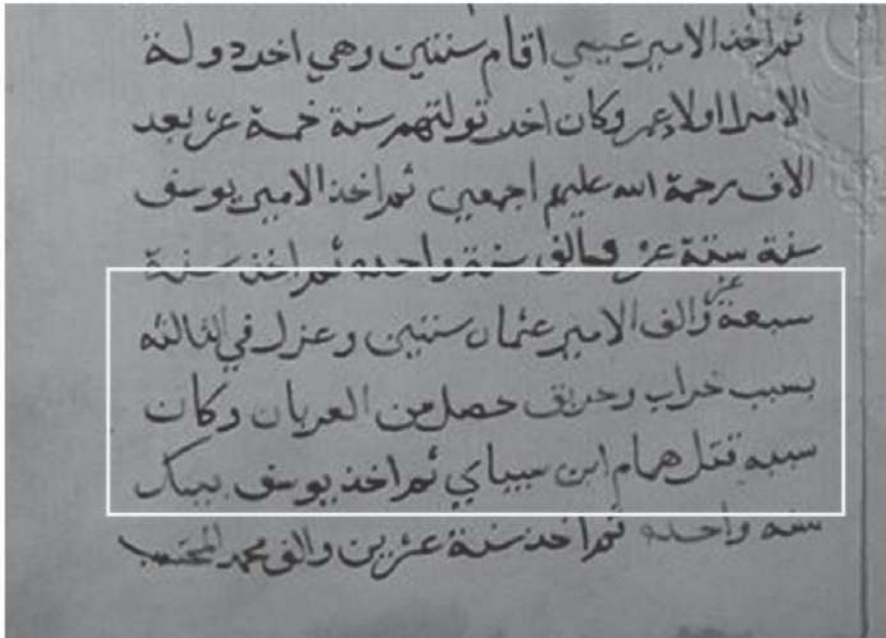 ثم اخذ الامير عيسي اقام سنتين وهي اخر دولة
الامرا اولاد عمر وكان اخر توليتهم سنة خمسة عشر بعد
الالف رحمة الله عليهم اجمعين ثم اخذ الامير يوسف
سنة ستة عشر والف سنة واحده ثم اخذ سنة
سبعة عشر والف الامير عثمان سنتين وعزل في الثالثه
بسبب خراب وحريق حصل من العربان وكان
سببه قتل همام ابن سيباي ثم اخذ يوسف بيك
سنه واحده ثم اخذ سنة عشرين والف محمد المحتسب